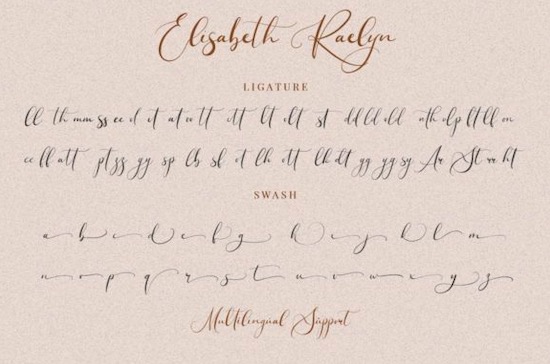 Elisabeth Raelyn
LIGATURE
ll th mm ss ee d it at oo tt itt lt ilt st dd ld ill nth lp lt ll on
cc ll att pt zz gg sp lb sf et lh ott lh dt gg yy sy Ar St rr ht
SWASH
a b c d e f g h i j k l m
n o p q r s t u v w x y z
Multilingual Support